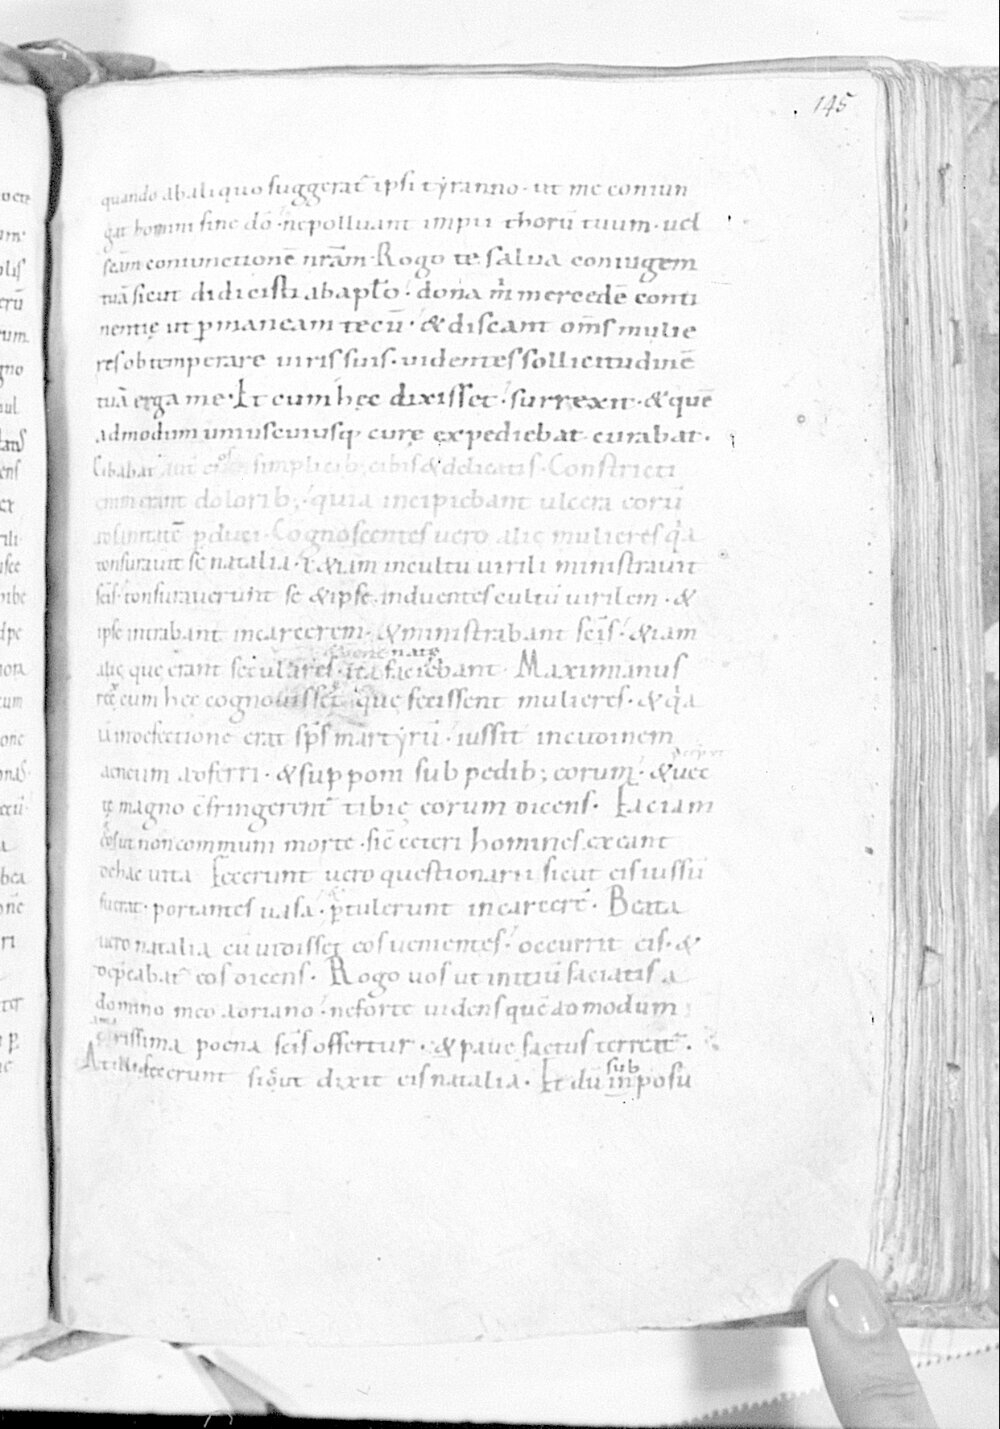 145
quando abaliquo suggerat̄ ipsi tyranno· ut me coniun
gat homini sine dō· ne polluant impii thorū tuum· uel
scām coniunctionē nr̄am· Rogo te salua coniugem
tuā sicut didicisti abaplo· dona m̄ mercedē conti
nentię ut pmaneam tecū· & discant om̄s mulie
res obtemperare uiris suis· uidentes sollicitudinē
tuā erga me· Et cum hęc dixisset· surrexit· & quē
admodum uniuscuiusq; curę expediebat curabat·
Cibabat aut eos simplicib; cibis & delicatis· Constricti
enim erant dolorib; quia incipiebant ulcera eorū
adsanitatē pduci· Cognoscentes uero alię mulieres qa
tonsurauit se natalia· & iam incultu uirili ministrauit
scīs· tonsurauerunt se & ipsę induentes cultū uirilem· &
ipsę intrabant incarcerem· & ministrabant scīs· & iam
alię que erant seculares· ita faciebant· Maximianus
cum hęc cognouisset que fecissent mulieres· & qa
erat sps martyrū· iussit incudinem
aeneum adferri· & supponi sub pedib; eorum· & uec
te magno cfringerent tibię eorum dicens· Faciam
eos ut non communi morte· sic ceteri homines exeant
dehac uita Fecerunt uero questionarii sicut eis iussū
fuerat· portantes uasa· ptulerunt incarcerē· Beata
uero natalia cū uidisset eos uenientes· occurrit eis· &
dep̄cabat̄ eos dicens· Rogo uos ut initiū faciatis a
domino meo adriano· ne forte uidens quēadmodum
amarissima poena scīs offertur· & paue factus terreat̄·
At illi fecerunt sicut dixit eis natalia· Et dū sub inposu